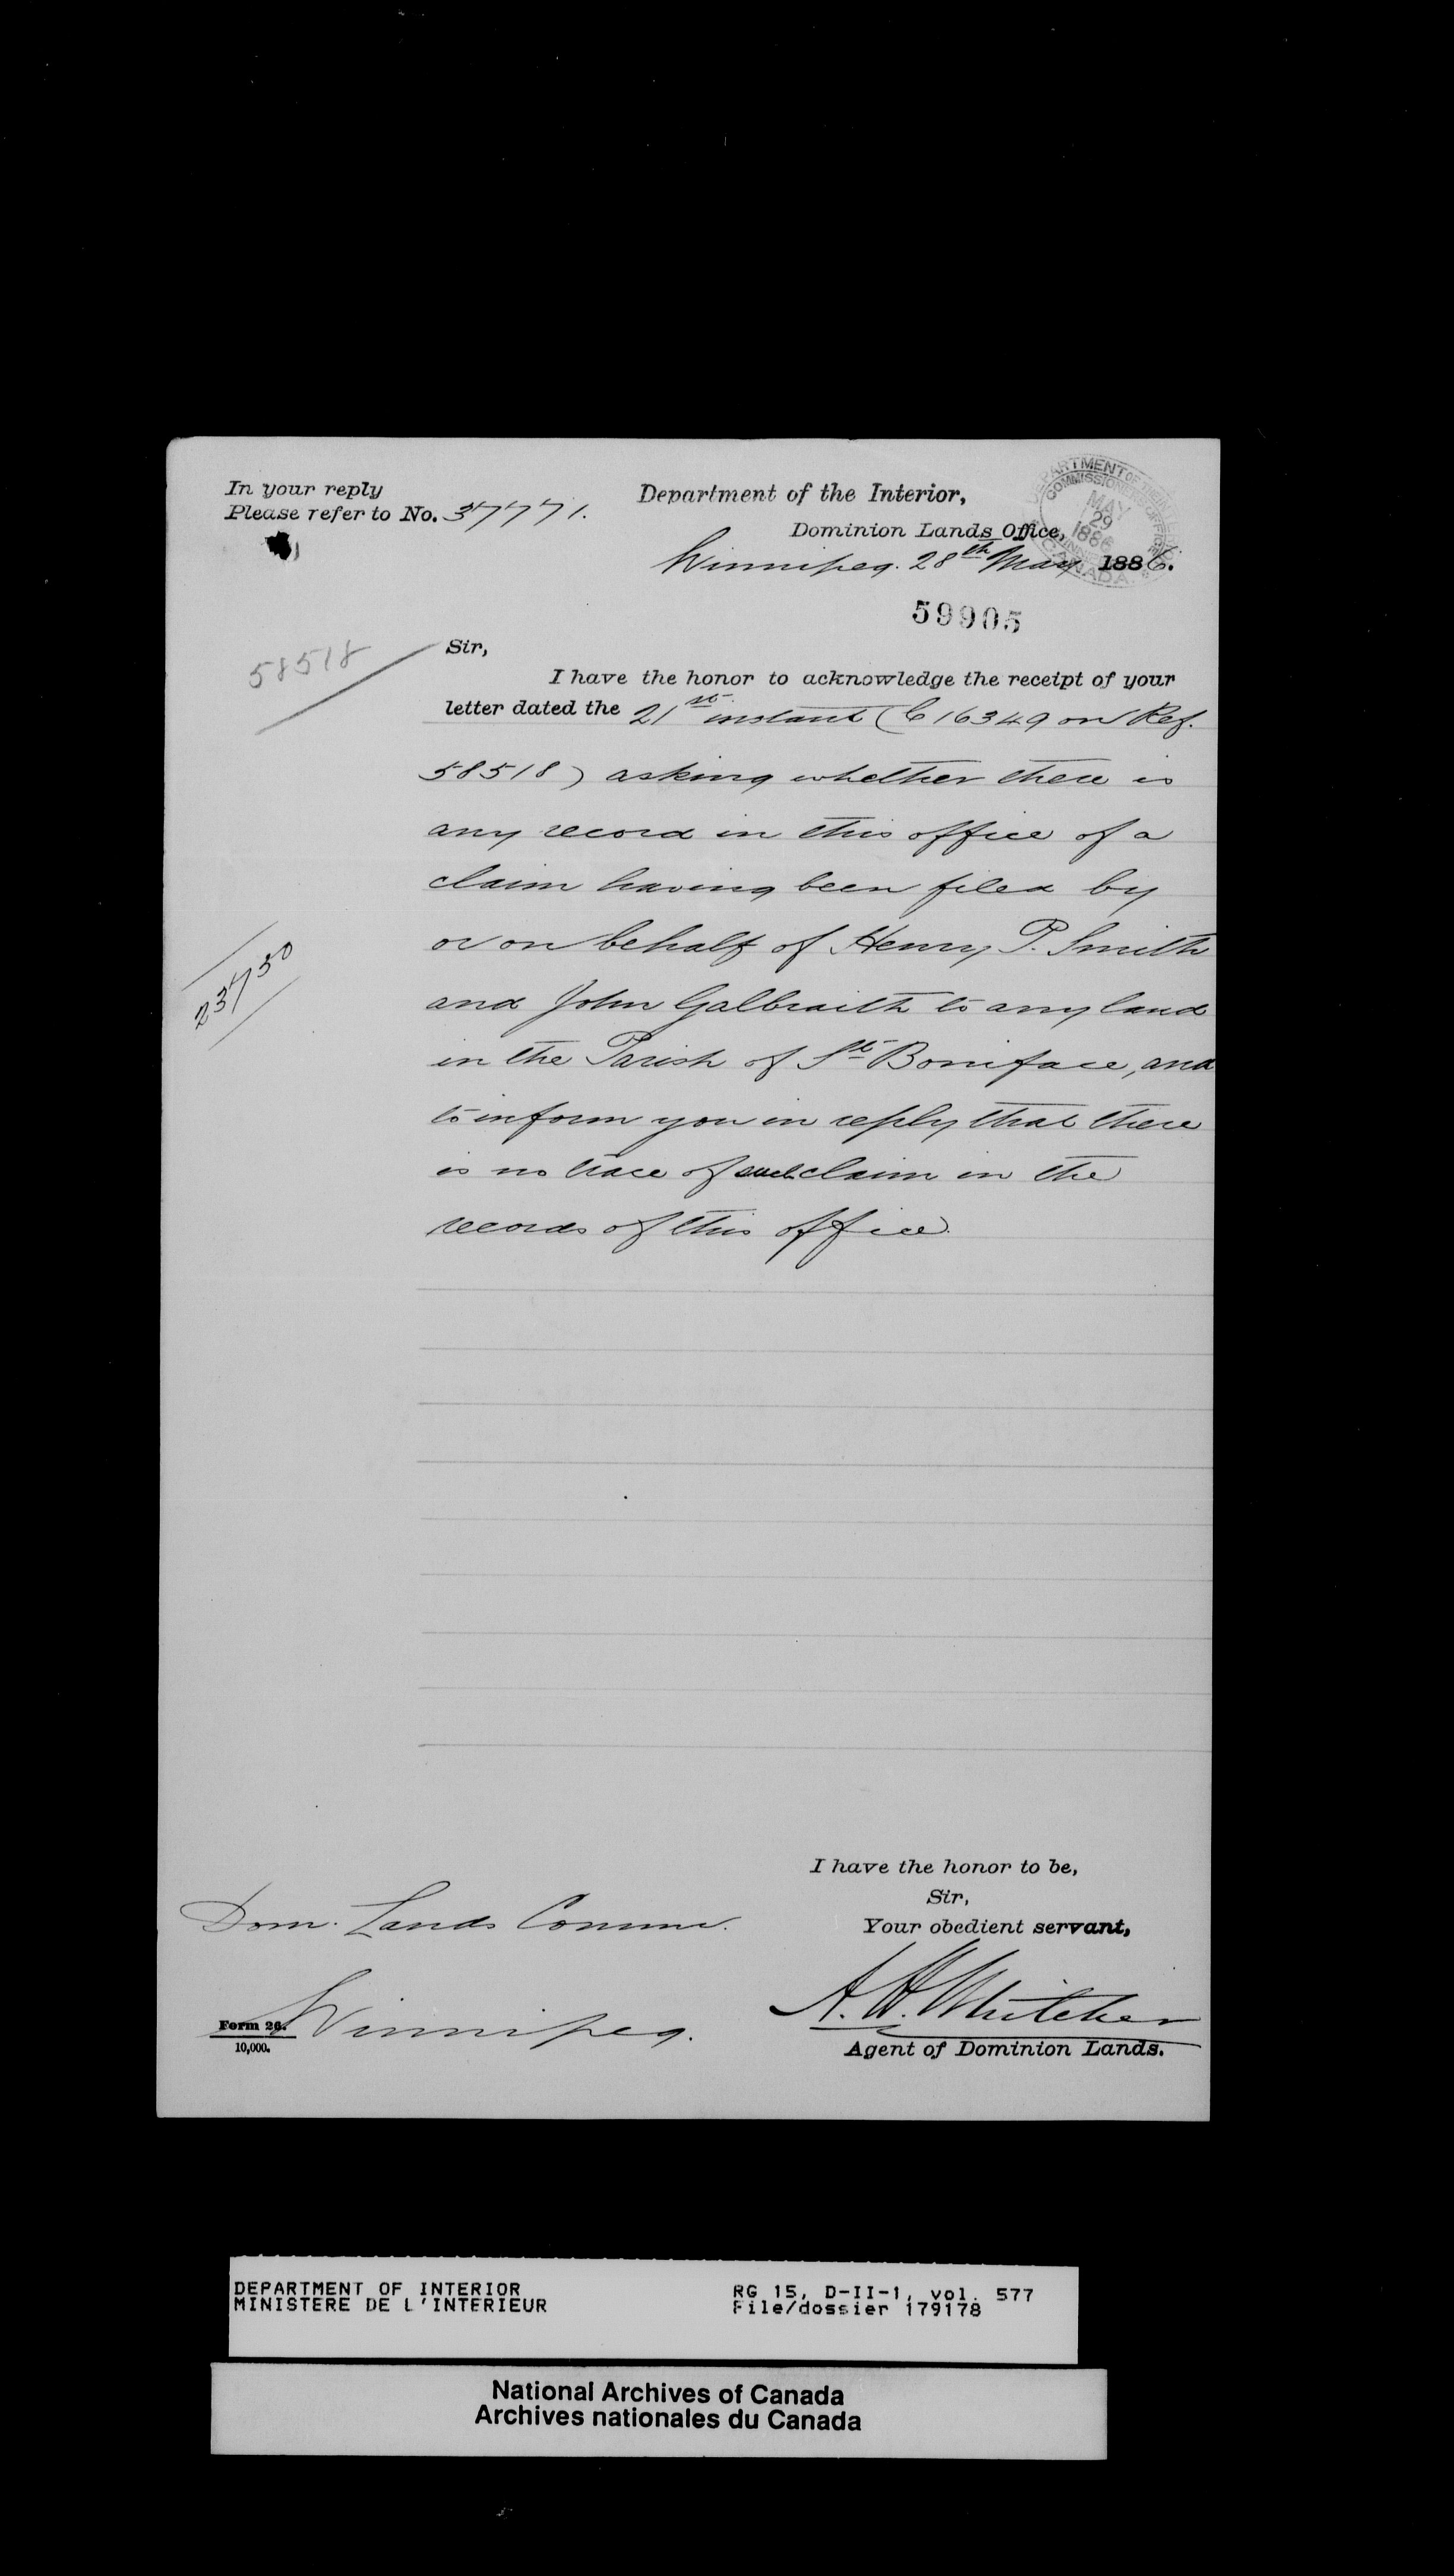 In your reply
Please refer to No. 37771.
Department of the Interior,
Dominion Lands Office,
Winnipeg. 28th May 1886.
DEPARTMENT OF THE INTERIOR
COMMISSIONER'S OFFICE
MAY
29
1886
WINNIPEG
CANADA
59905
58518
Sir,
I have the honor to acknowledge the receipt of your
letter dated the 21st instant (C 16349 on Ref.
58518) asking whether there is
any record in this office of a
claim having been filed by
or on behalf of Henry P. Smith
and John Galbraith to any land
in the Parish of St Boniface, and
to inform you in reply that there
is no trace of such claim in the
records of this office.
23750
I have the honor to be,
Sir,
Your obedient servant,
A. H. Whitcher
Agent of Dominion Lands.
Dom. Lands Commr.
Winnipeg.
Form 26.
10,000.
DEPARTMENT OF INTERIOR
MINISTERE DE L'INTERIEUR
RG 15, D-II-1, vol. 577
File/dossier 179178
National Archives of Canada
Archives nationales du Canada